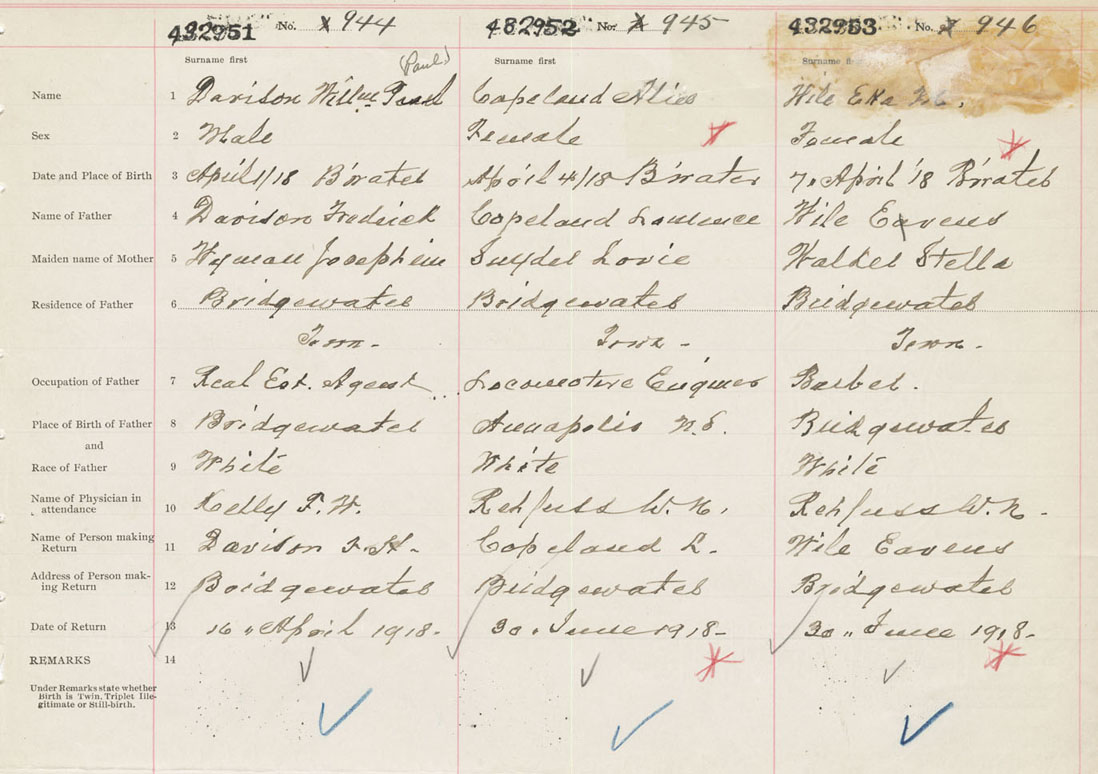 432951 No. 944 432952 No. 945 432953 No. 946
(Paul)
Surname first Surname first Surname
Name 1 Davison Willm Paul Copeland Alice Wile Eka M.
Sex 2 Male Female Female
Date and Place of Birth 3 April 1/18 B'water April 4/18 B'water 7, April '18 B'water
Name of Father 4 Davison Fredrick Copeland Lawrence Wile Eavens
Maiden name of Mother 5 Wyman Josephine Snyder Lovie Stella
Residence of Father 6 Bridgewater Bridgewater Bridgewater
Town - Town - Town -
Occupation of Father 7 Real Est. Agent Locomotive Enginer Barber.
Place of Birth of Father 8 Bridgewater Annapolis N.S. Bridgewater
and
Race of Father 9 White White White
Name of Physician in
attendance 10 Kelly F. W. Rehfuss W. N. Rehfuss W. N.
Name of Person making
Return 11 Davison F. H. Copeland L. Wile Eavens
Address of Person mak-
ing Return 12 Bridgewater Bridgewater Bridgewater
Date of Return 13 16 " April 1918 - 30 " June 1918 - 30 " June 1918 -
REMARKS 14
Under Remarks state whether
Birth is Twin, Triplet Ille-
gitimate or Still-birth.